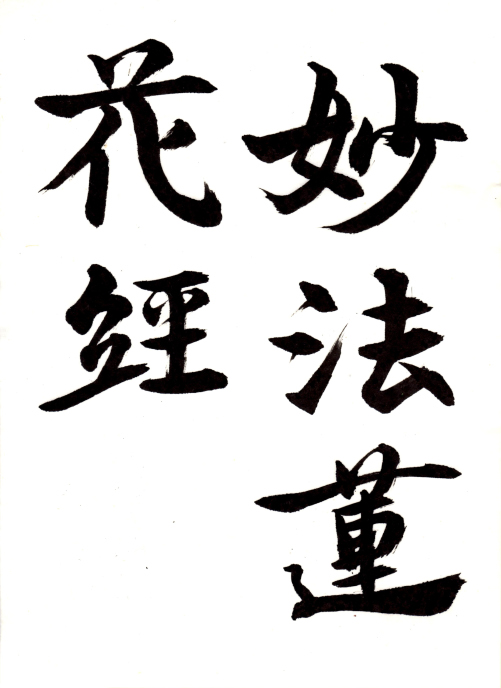 妙法蓮
花經